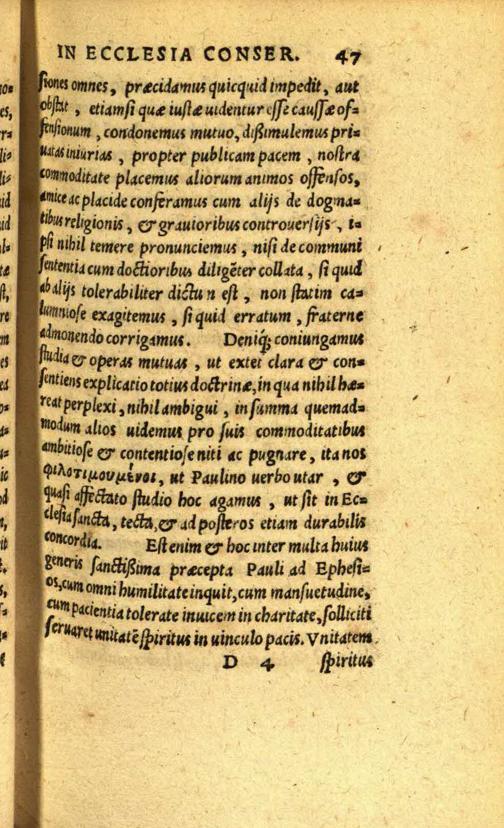 IN ECCLESIA CONSER. 47
ſiones omnes, præcidamus quicquid impedit, aut
obſtat, etiamſi quæ iuſtæ uidentur eſſe cauſſæ of=
fenſionum, condonemus mutuo, dißimulemus pri=
uatas iniurias, propter publicam pacem, noſtra
commoditate placemus aliorum animos offenſos,
amice ac placide conferamus cum alijs de dogma=
tibus religionis, & grauioribus controuerſijs, i=
pſi nihil temere pronunciemus, niſi de communi
ſententia cum doctioribus diligẽter collata, ſi quid
ab alijs tolerabiliter dictu n eſt, non ſtatim ca=
lumnioſe exagitemus, ſi quid erratum, fraterne
admonendo corrigamus. Deniq; coniungamus
ſtudia & operas mutuas, ut extet clara & con=
ſentiens explicatio totius doctrinæ, in qua nihil hæ=
reat perplexi, nihil ambigui, in ſumma quemad=
modum alios uidemus pro ſuis commoditatibus
ambitioſe & contentioſe niti ac pugnare, ita nos
φιλοτιμουμένοι, ut Paulino uerbo utar, &
quaſi affectato ſtudio hoc agamus, ut ſit in Ec=
cleſia ſancta, tecta, & ad poſteros etiam durabilis
concordia. Eſt enim & hoc inter multa huius
generis ſanctißima præcepta Pauli ad Epheſi=
os, cum omni humilitate inquit, cum manſuetudine,
cum pacientia tolerate inuicem in charitate, ſolliciti
ſeruaret unitatẽ ſpiritus in uinculo pacis. Vnitatem
D 4 ſpiritus